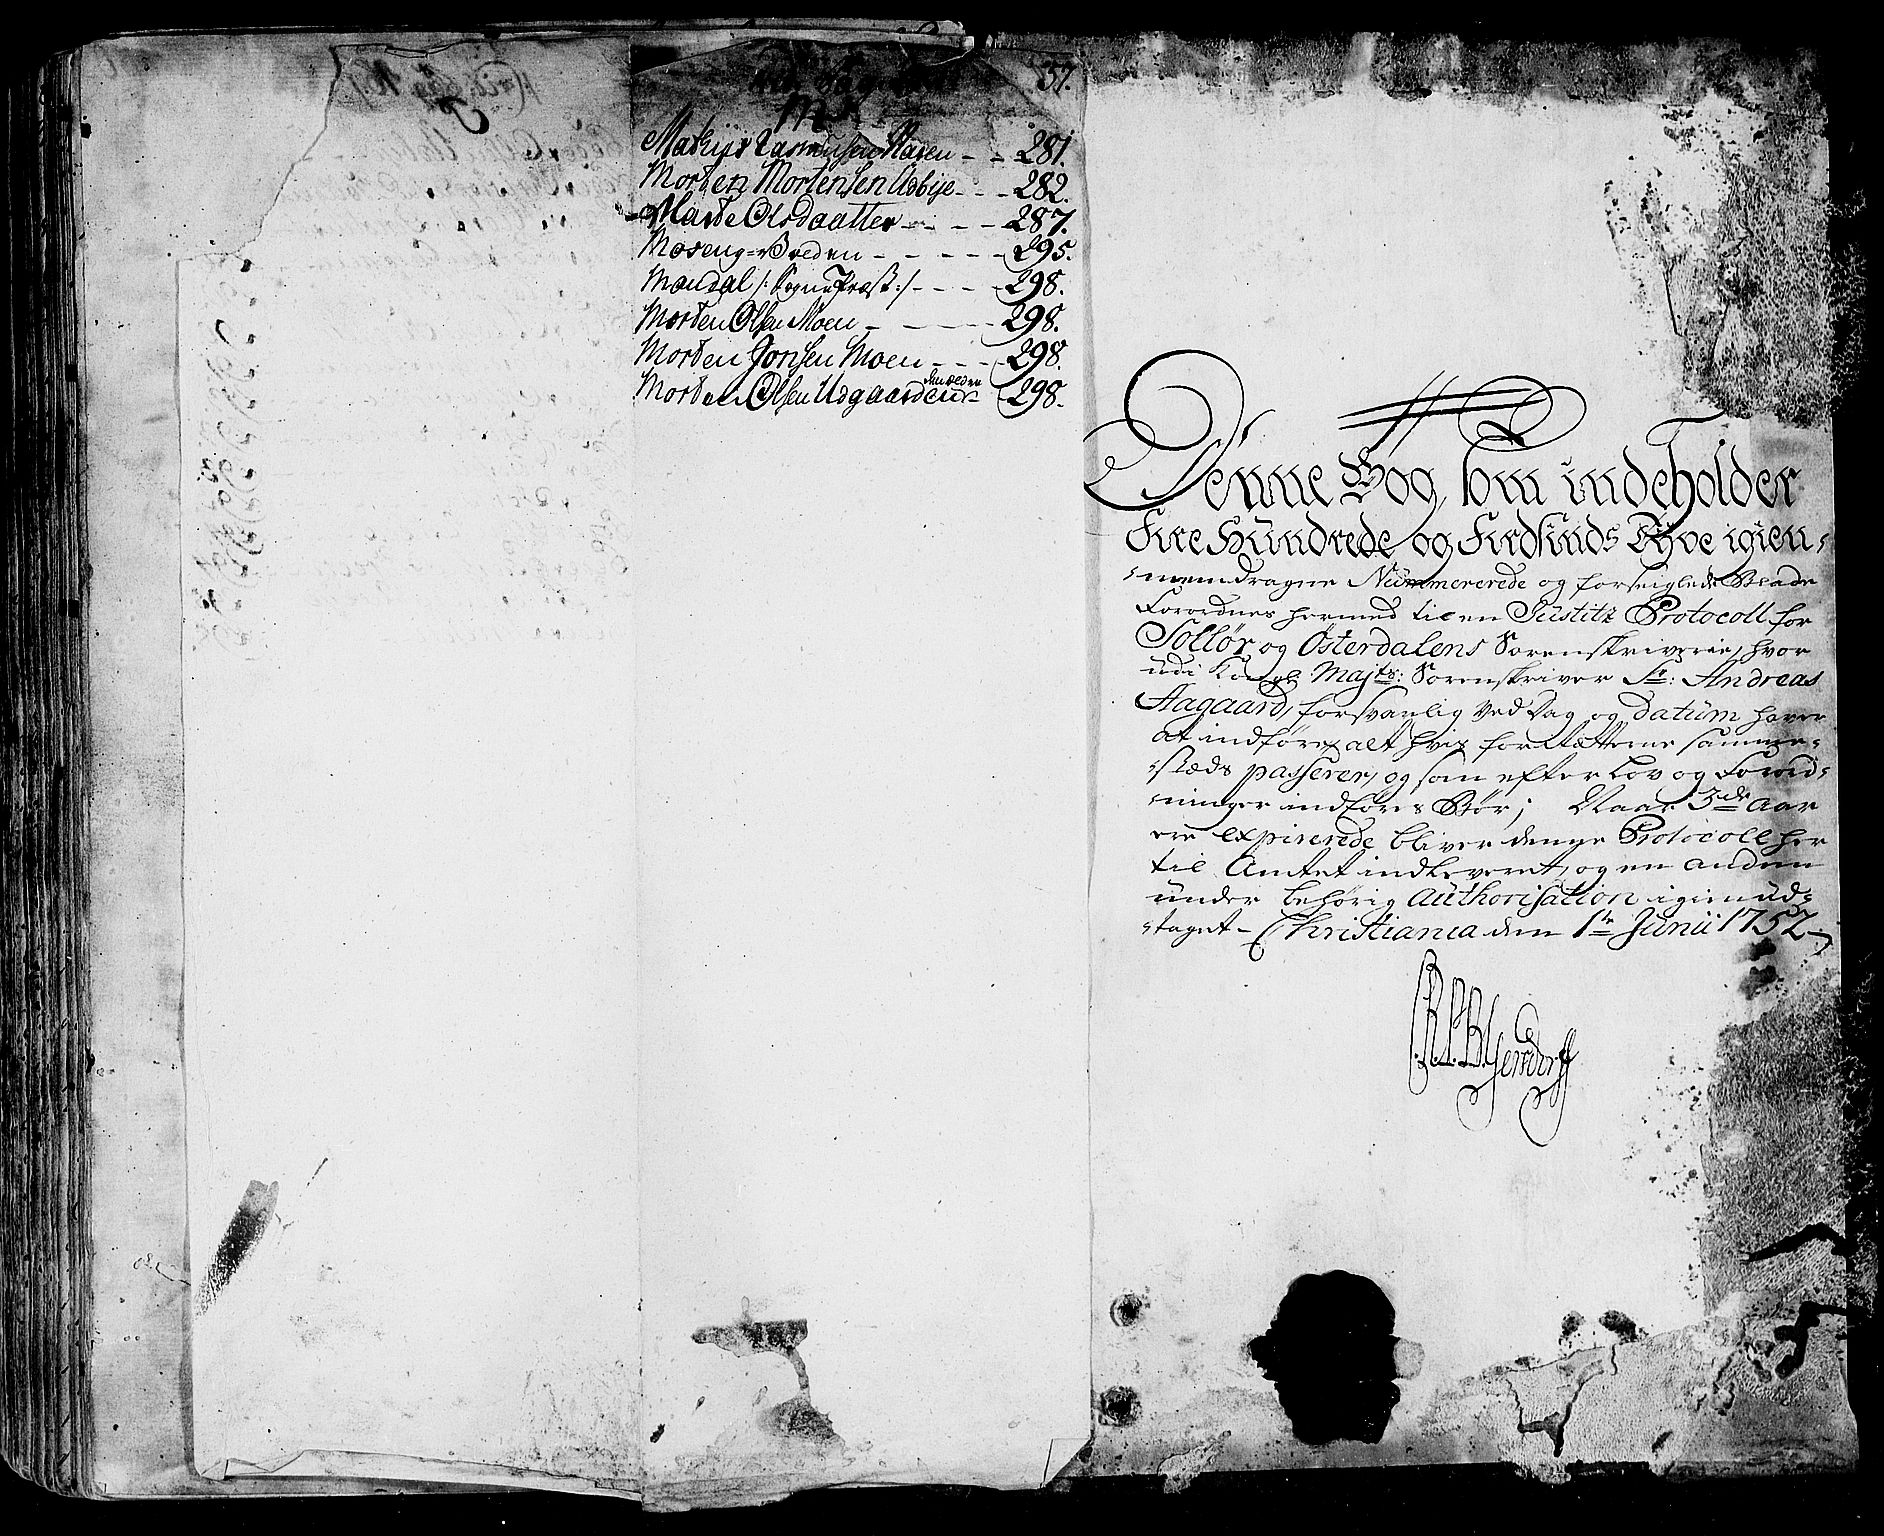 37.
M
Mathijs Rasmusen Naren - - 281.
Morten Mortensen Udbije - - - 282.
Marte Olsdaatter - - - - 287.
Moseng=Breden - - - - - 295.
Mandal /: Sogne Præst :/ - - - - 298.
Morten Olsen Moen - - - - - 298.
Morten Jonsen Moen - - - - 298.
Morten Olsen Udgaarden 298.
Denne Bog, som indeholder
Fire Hundrede og Firdsinds Tyve igien-
-nemdragne Nummererede og forseiglede Blade
Forordnes hermed til en Justitz Protocoll for
Sollør og Østerdalens Sorenskriverie, hvor
udi Kongl. Majts: Sorenskriver Sr: Andreas
Aagaard, forsvarlig Ved Dag og datum haver
at indføre alt hvis for Rætterne samme-
-stæds passerer, og som efter Lov og Forord-
-ninger indføres Bør; Naar 3de Aar
ere expirerede bliver denne Protocoll her
til Amtet indleveret, og en anden
under behørig Authorisation igien ud-
-taget - Christiania den 1te Junii 1752